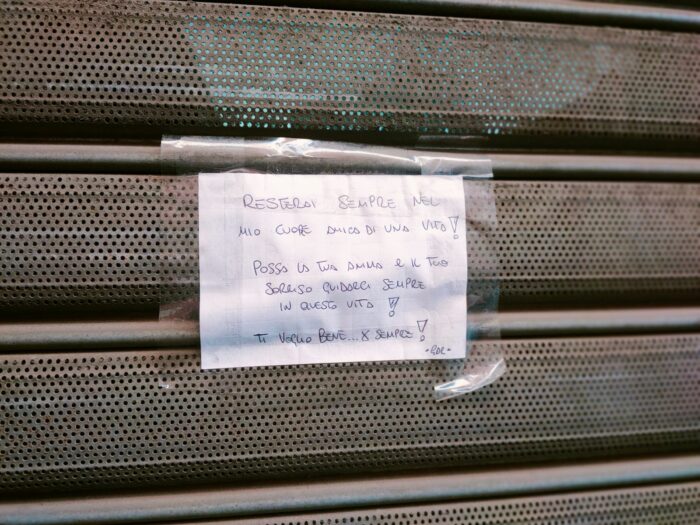 RESTERAI SEMPRE NEL
MIO CUORE AMICA DI UNA VITA!
POSSA LA TUA ANIMA E IL TUO
SORRISO GUIDARCI SEMPRE
IN QUESTA VITA!
TI VOGLIO BENE... X SEMPRE!